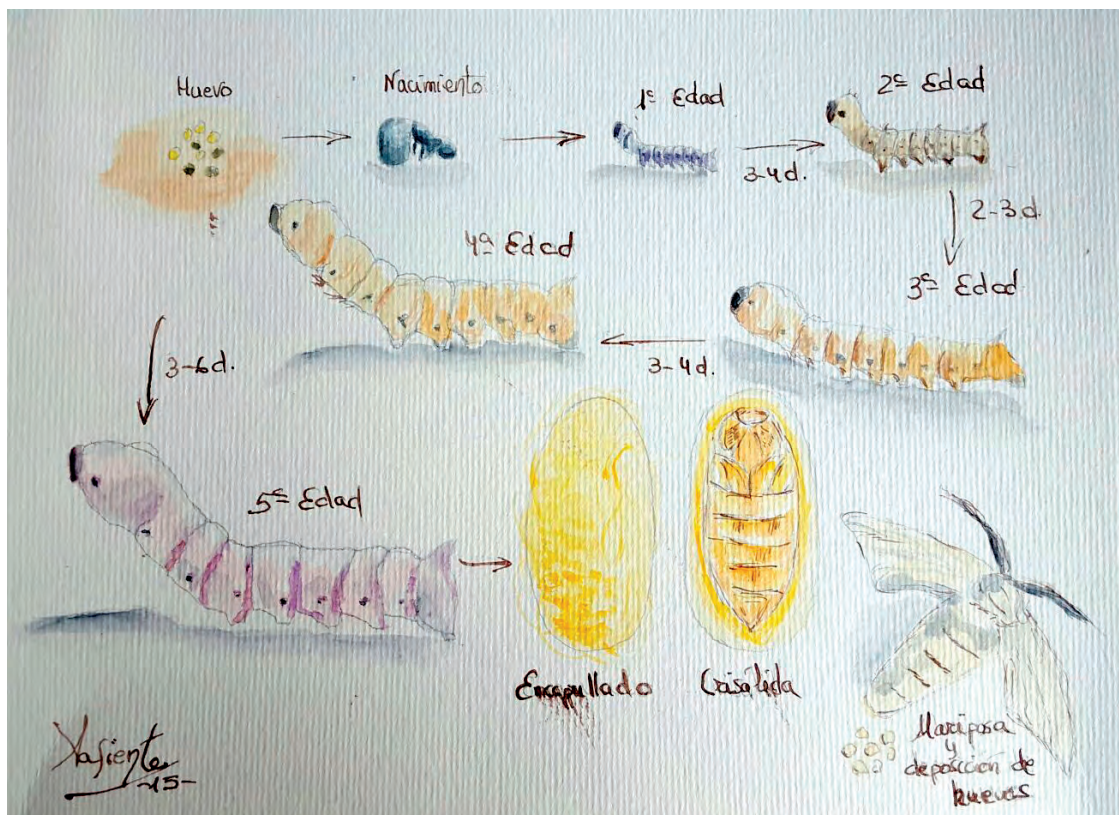 Huevo
Nacimiento
1ª Edad
3-4d.
2ª Edad
2-3.d.
3ª Edad
3-4d.
4ª Edad
3-6d.
5ª Edad
Encapullado
Crisálida
Mariposa
y
deposición de
huevos
-15-